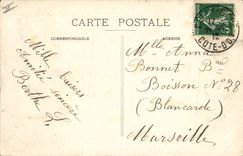 CARTE POSTALE
CORRESPONDANCE
ADRESSE
Mille baisers
Amitié sincère
Berthe S.
CÔTE-D'OR
12
Melle Anna
Bonnet Bd
Boisson No 28
(Blancarde)
Marseille